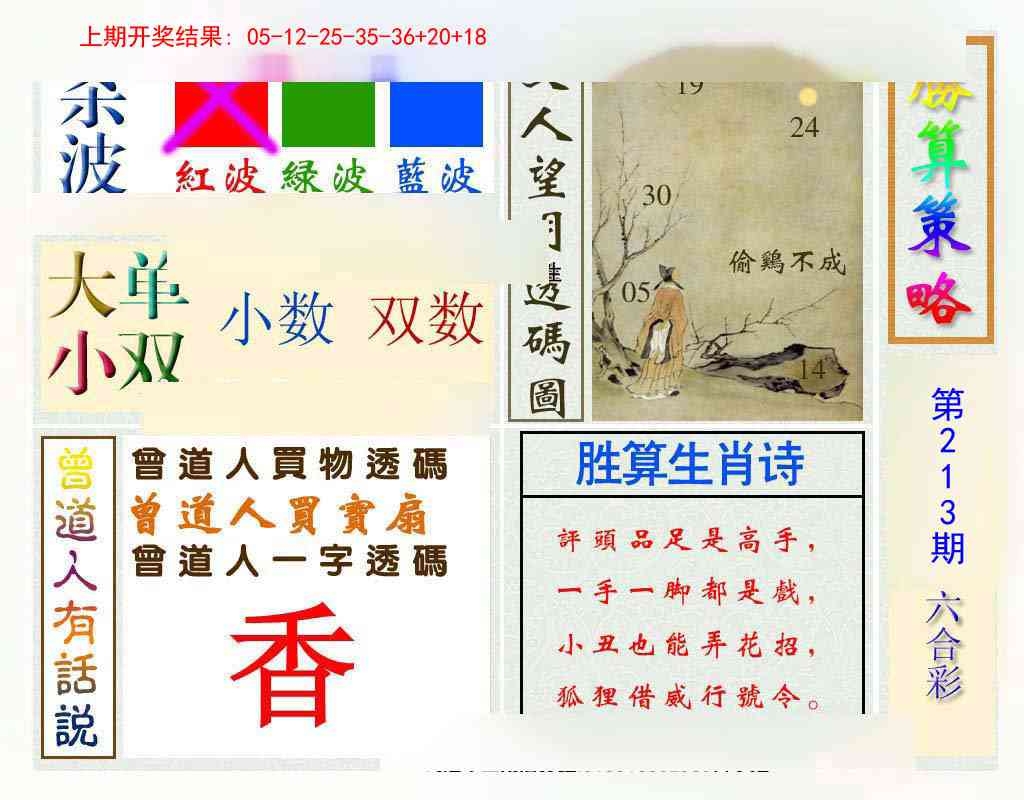 上期开奖结果: 05-12-25-35-36+20+18
波
紅波 綠波 藍波
大单
小双
小数 双数
人望月透碼圖
19
24
30
偷鷄不成
05
14
勝算策略
第213期
六合彩
曾道人有話説
曾道人買物透碼
曾道人買寶扇
曾道人一字透碼
香
胜算生肖诗
評頭品足是高手，
一手一脚都是戲，
小丑也能弄花招，
狐狸借威行號令。